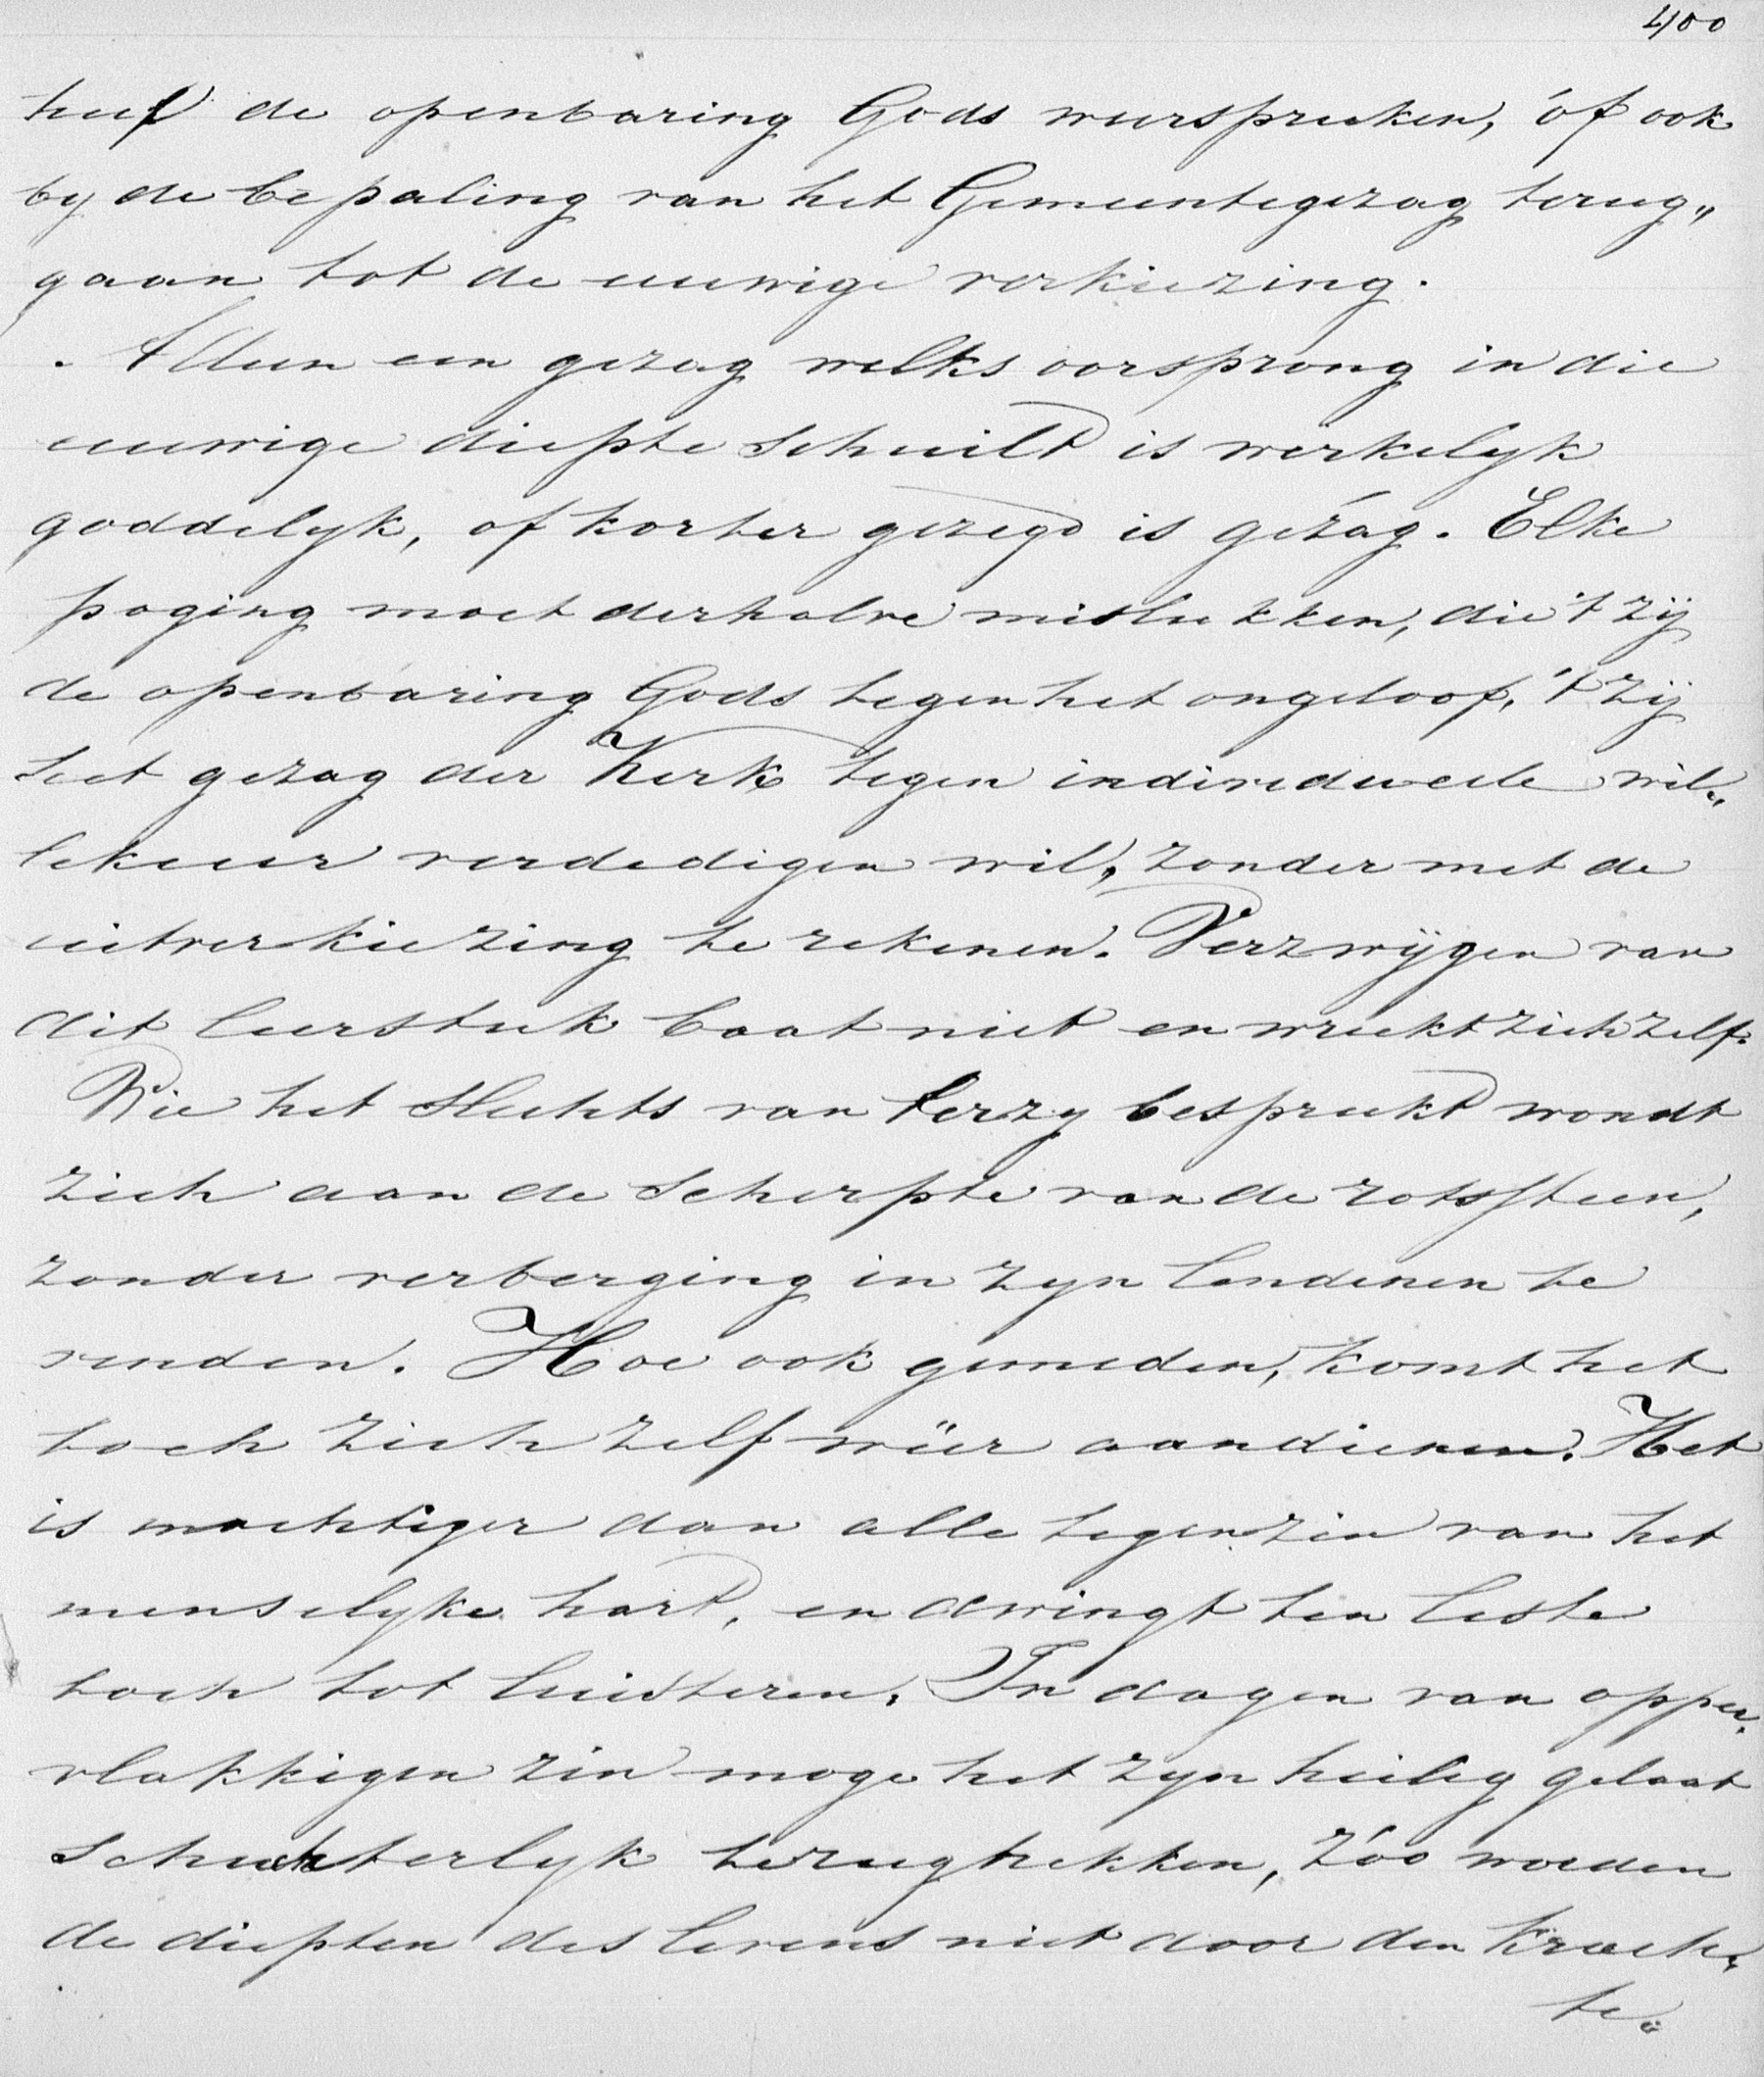 400
heel de openbaring Gods weerspreken, óf ook
by de bepaling van het Gemeentegezag terug„
gaan tot de eeuwige verkiezing.
Alleen een gezag welks oorsprong in die
eeuwige diepte schuilt is werkelyk
goddelyk, of korter gezegd is gezág. Elke
poging moet derhalve mislukken, die 't zij
de openbaring Gods tegen het ongeloof, 't zij
het gezag der Kerk tegen individueele wil„
lekeur verdedigen wil, zonder met de
uitverkiezing te rekenen. Verzwijgen van
dit leerstuk baat niet en wreekt zich zelf.
Wie het slechts van terzy bespreekt wondt
zich aan de scherpte van de rotssteen,
zonder verberging in zyn lendenen te
vinden. Hoe ook gemeden, komt het
toch zich zelf wéér aandienen. Het
is machtiger dan alle tegenzin van het
menselyke hart, en dwingt ten leste
toch tot luisteren. In dagen van opper„
vlakkigen zin moge het zyn heilig gelaat
schuchterlyk terugtrekken, zóó worden
de diepten des levens niet door den krach„
te„